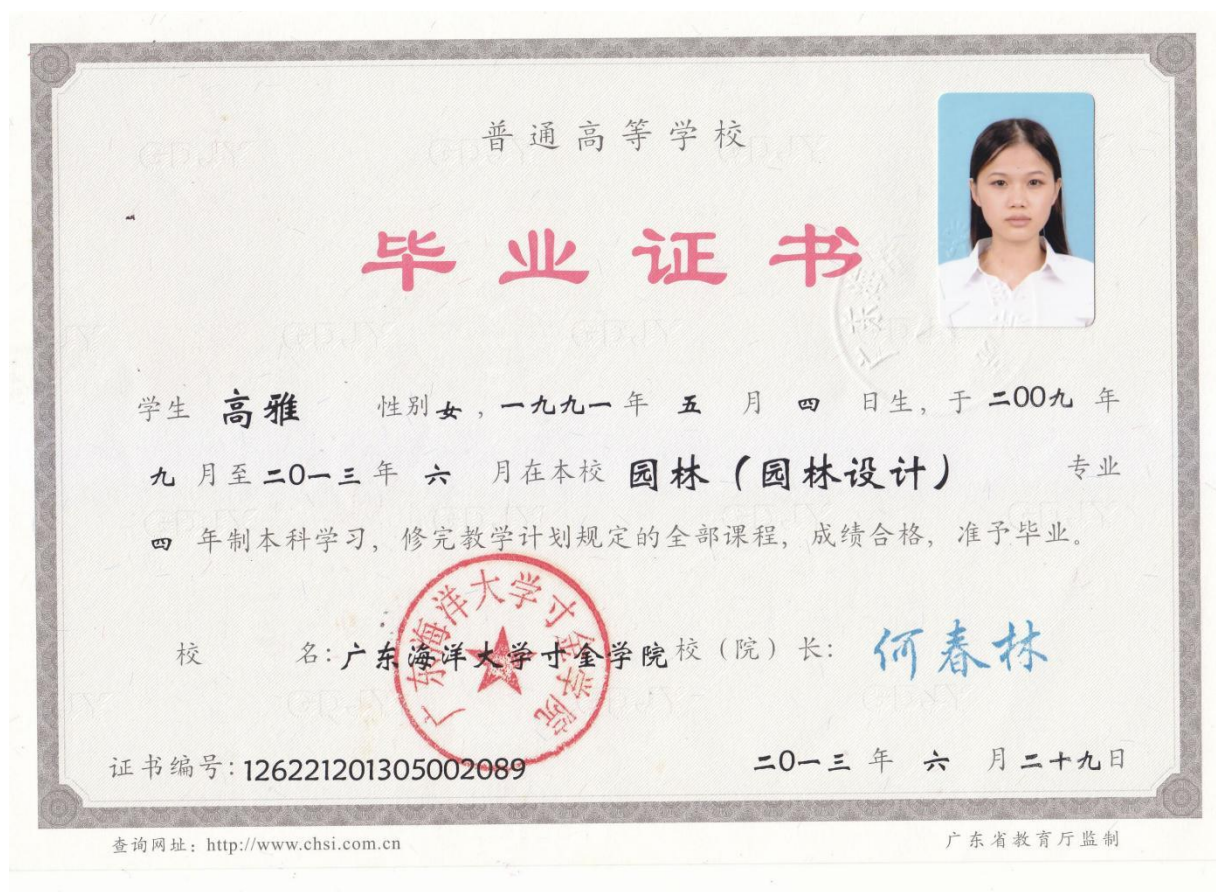 普通高等学校
毕业证书
学生 高雅 性别女,一九九一年 五 月 四 日生,于二00九 年
九 月至二0一三年 六 月在本校 园林(园林设计) 专业
四 年制本科学习,修完教学计划规定的全部课程,成绩合格,准予毕业。
校 名:广东海洋大学寸金学院校(院)长: 何春林
广东海洋大学寸金学院
证书编号:126221201305002089 二0一三 年 六 月二十九日
查询网址:http://www.chsi.com.cn 广东省教育厅监制